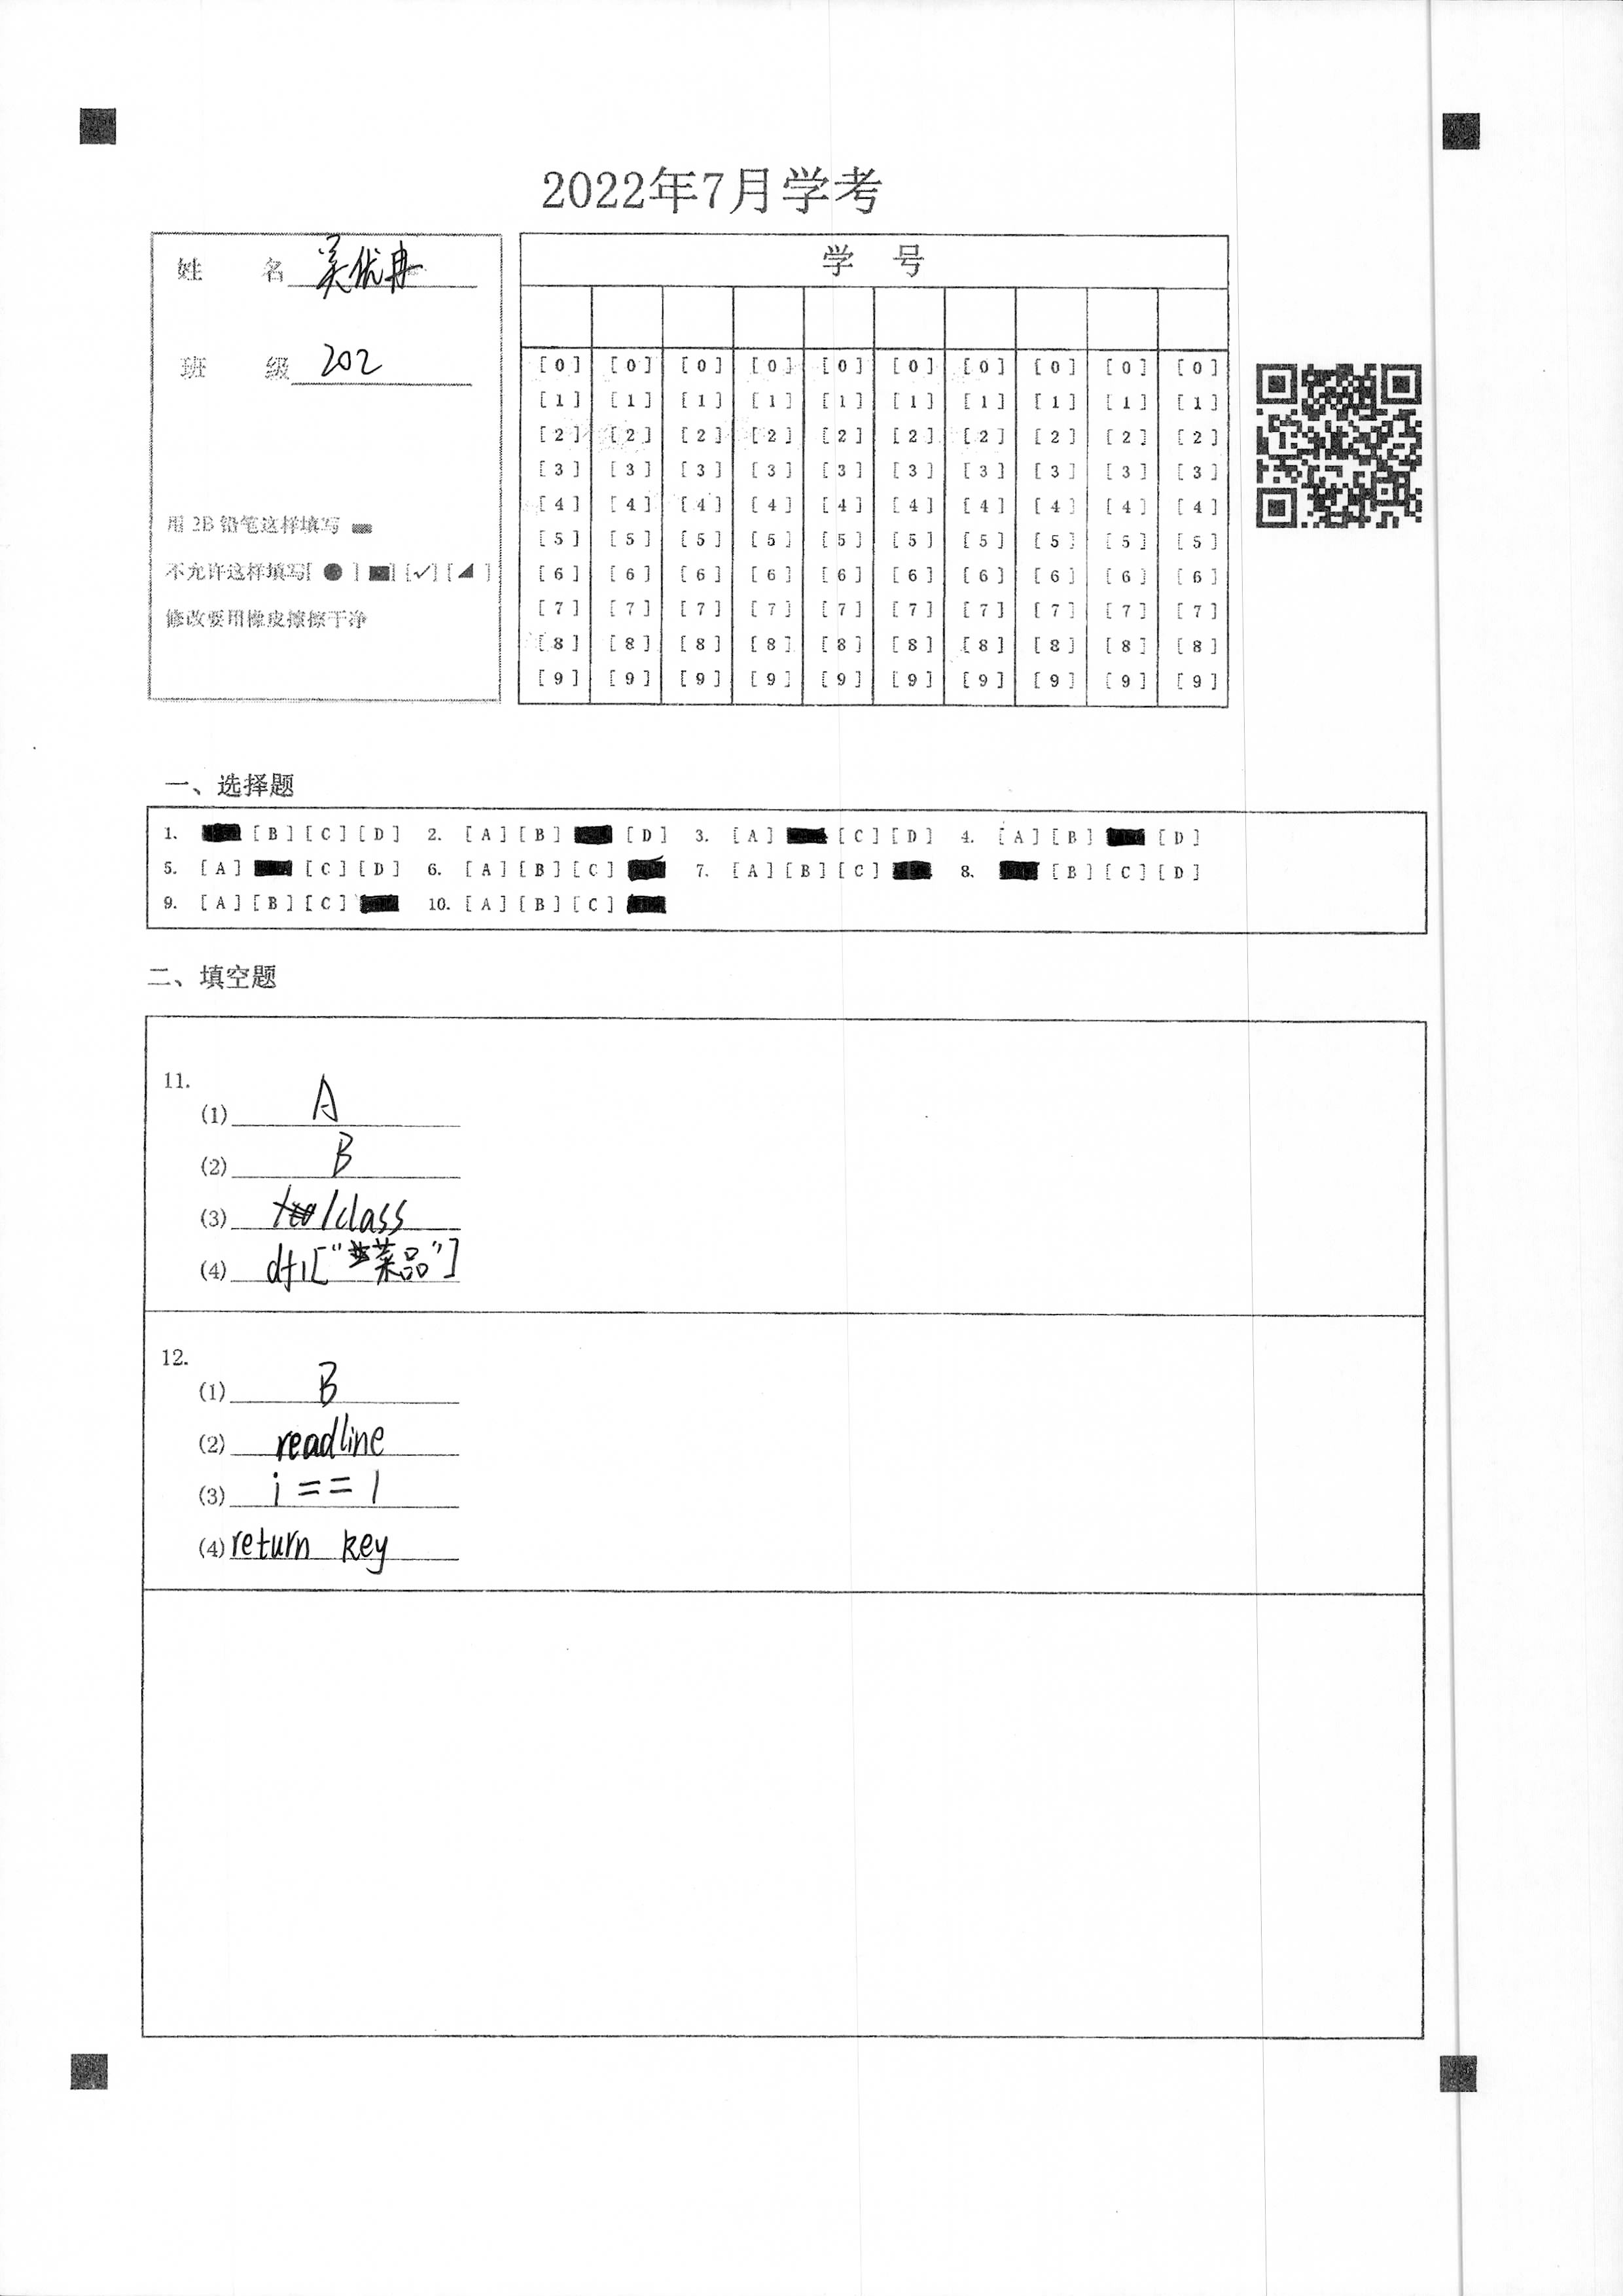 2022年7月学考
姓 名 吴优冉
班 级 202
用 2B 铅笔这样填写
不允许这样填写[ ● ] [✓] [ ]
修改要用橡皮擦擦干净
学 号
[0] [0] [0] [0] [0] [0] [0] [0] [0] [0]
[1] [1] [1] [1] [1] [1] [1] [1] [1] [1]
[2] [2] [2] [2] [2] [2] [2] [2] [2] [2]
[3] [3] [3] [3] [3] [3] [3] [3] [3] [3]
[4] [4] [4] [4] [4] [4] [4] [4] [4] [4]
[5] [5] [5] [5] [5] [5] [5] [5] [5] [5]
[6] [6] [6] [6] [6] [6] [6] [6] [6] [6]
[7] [7] [7] [7] [7] [7] [7] [7] [7] [7]
[8] [8] [8] [8] [8] [8] [8] [8] [8] [8]
[9] [9] [9] [9] [9] [9] [9] [9] [9] [9]
一、选择题
1. [B] [C] [D] 2. [A] [B] [D] 3. [A] [C] [D] 4. [A] [B] [D]
5. [A] [C] [D] 6. [A] [B] [C] 7. [A] [B] [C] 8. [B] [C] [D]
9. [A] [B] [C] 10. [A] [B] [C]
二、填空题
11.
(1) A
(2) B
(3) /class
(4) df1["菜品"]
12.
(1) B
(2) readline
(3) i == 1
(4) return key